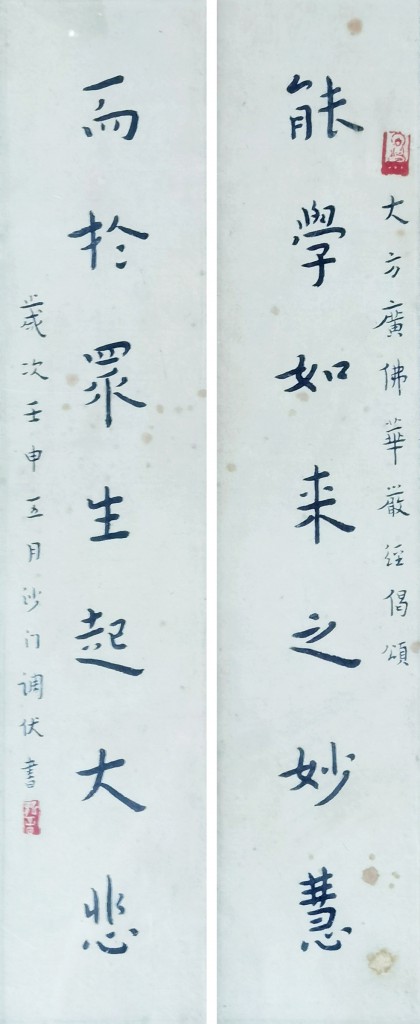 大方廣佛華嚴經偈頌
能學如来之妙慧
而於眾生起大悲
歲次壬申五月沙门调伏書